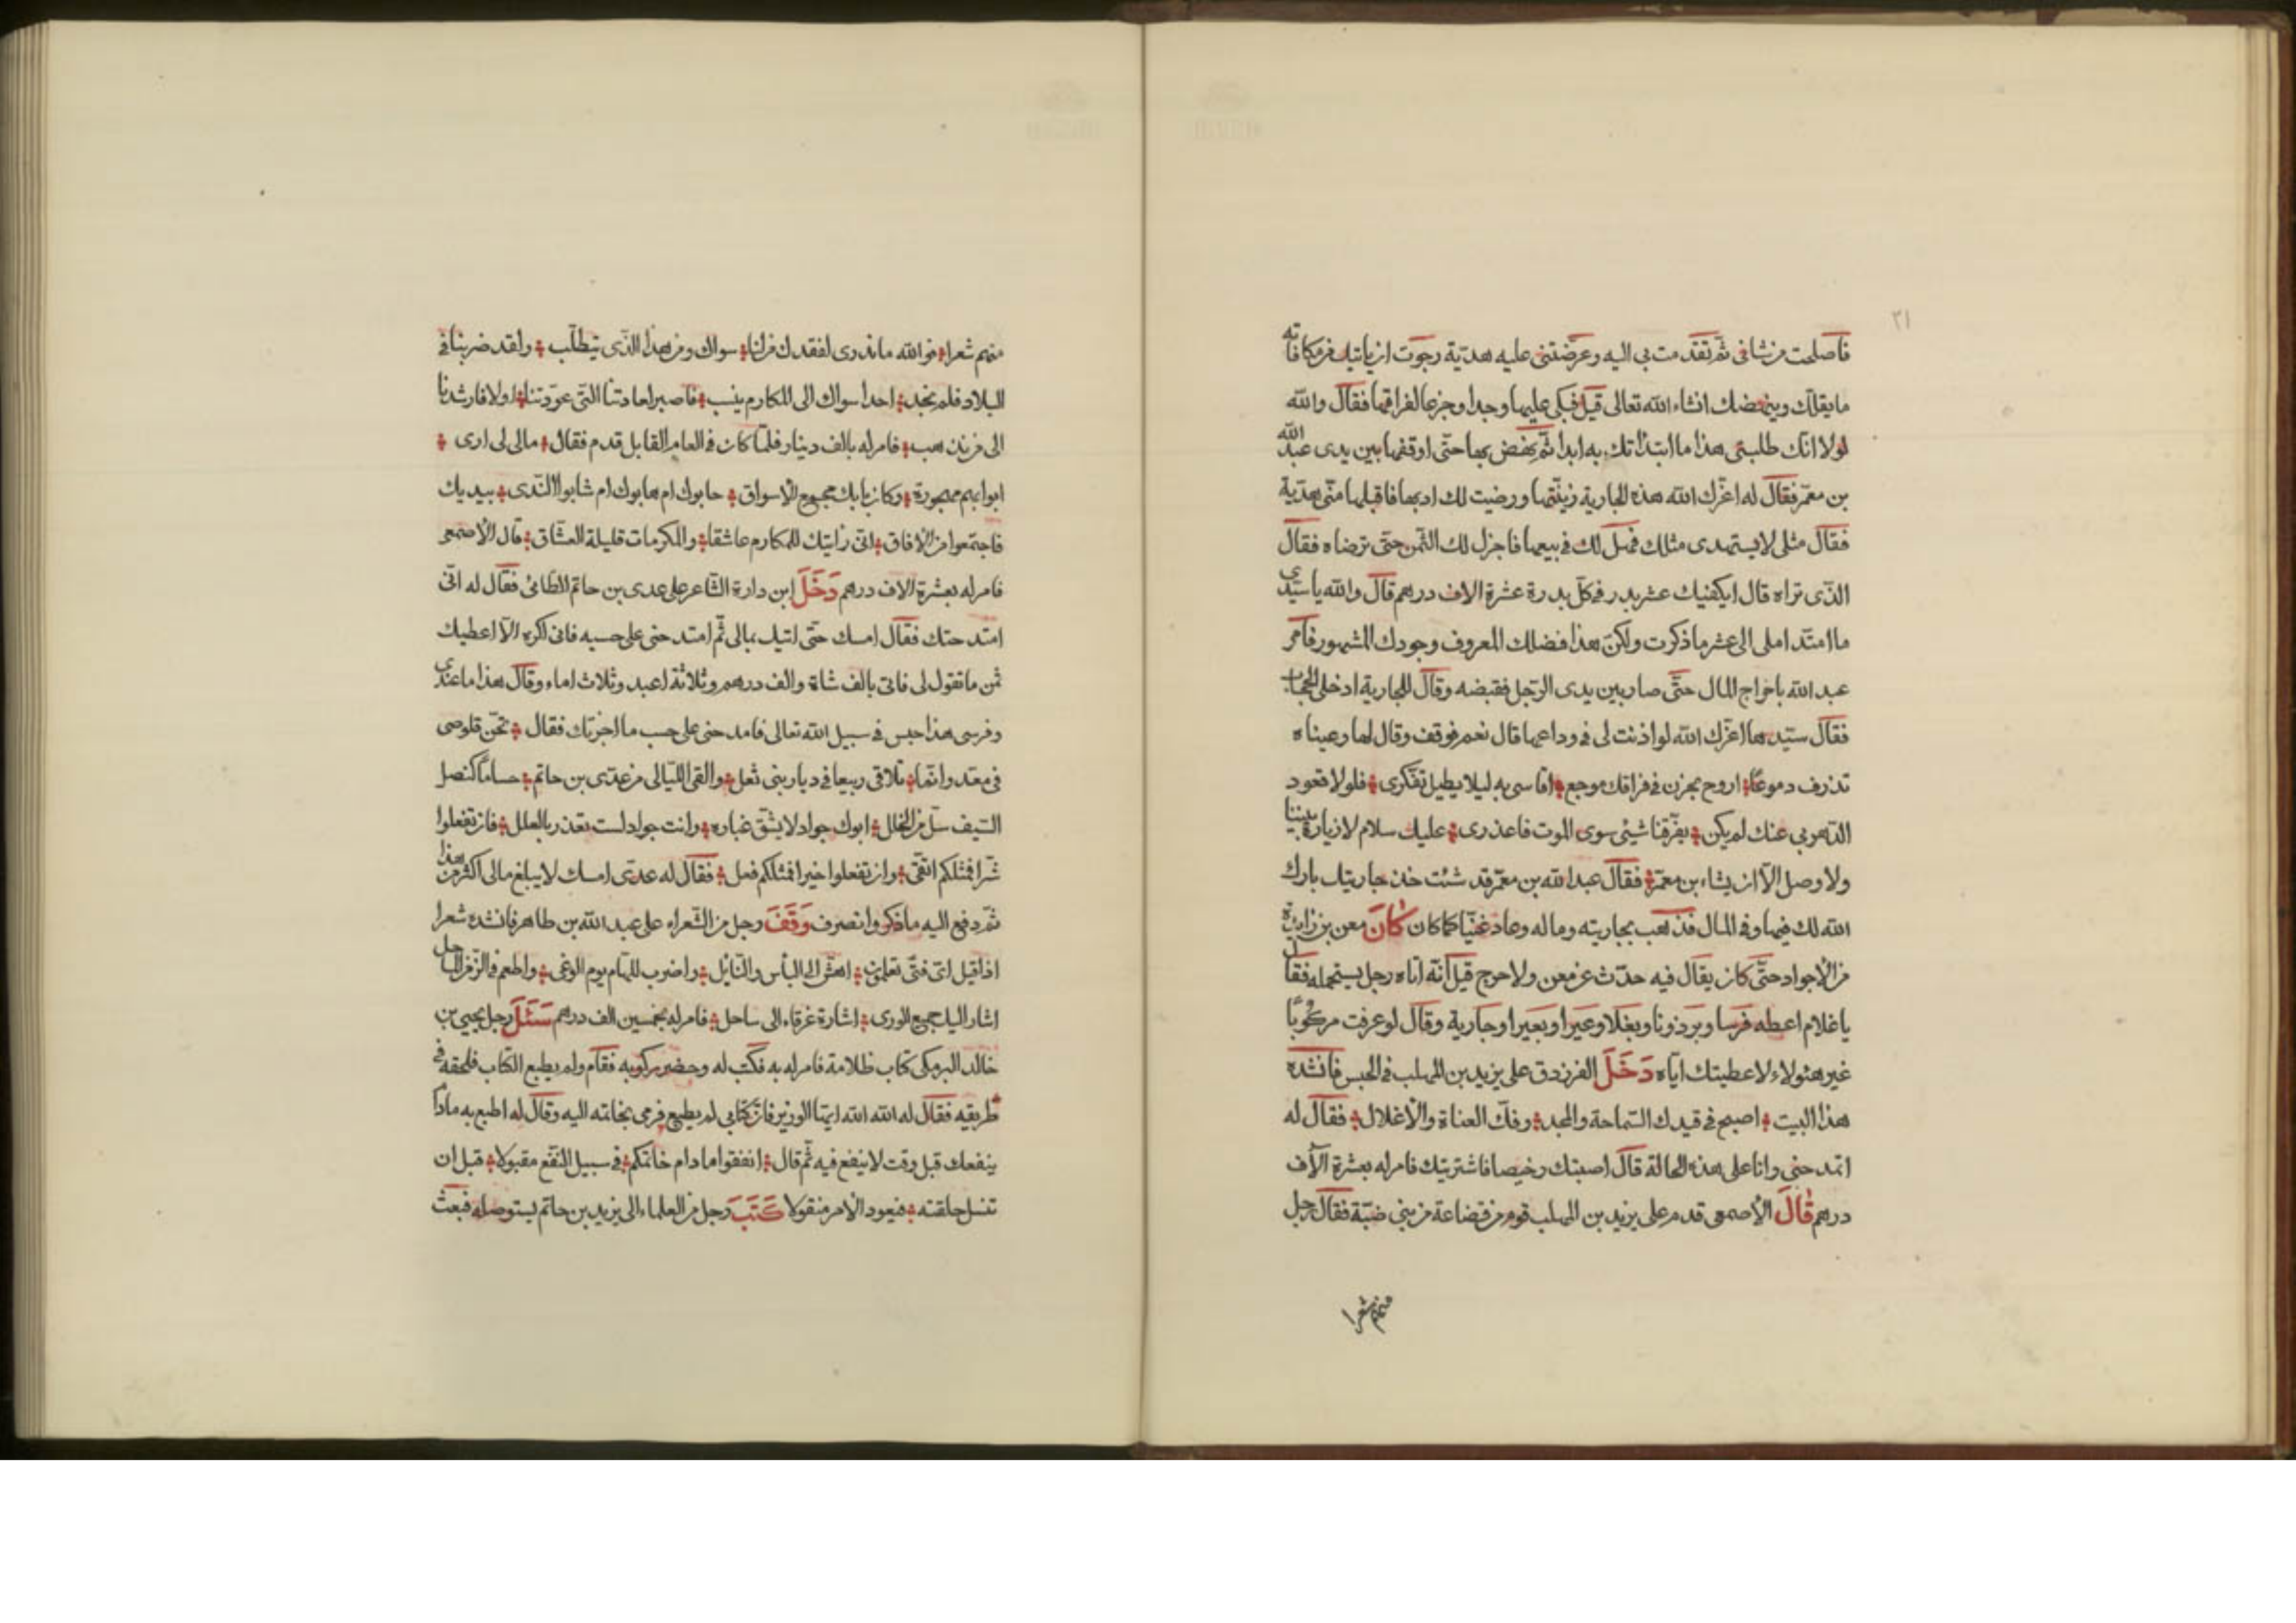 ٢١
فأصلحت من شانى ثمّ تقدمت بى اليه وعرّضتنى عليه هديّة رجوت ان ياتيك من مكافاته
ما يقلّك وينهضك انشاء الله تعالى قيل فبكى عليها وجدا وجزعا لفراقها فقال والله
لولا انّك طلبتى هذا ما ابتداتك به ابدا ثمّ نهض بها حتّى اوقفها بين يدى عبد الله
بن معمّر فقال له اعزّك الله هذه الجارية زيّنتها ورضيت لك ادبها فاقبلها منّى هديّة
فقال مثلى لا يستهدى مثلك فهل لك فى بيعها فاجزل لك الثّمن حتى ترضاه فقال
الذّى تراه قال ايكفيك عشر بدر فى كلّ بدرة عشرة الاف درهم قال والله يا سيّدى
ما امتدّ املى الى عشر ما ذكرت ولكن هذا فضلك المعروف وجودك المشهور فأمر
عبد الله باخراج المال حتّى صار بين يدى الرّجل فقبضه وقال للجارية ادخلى الحجاب
فقال سيّدها اعزّك الله لو اذنت لى فى وداعها قال نعم فوقف وقال لها وعيناه
تذرف دموعًا اروح بحزن فى فراقك موجع اقاسى به ليلا يطيل تفكّرى فلولا قعود
الدّهر بى عنك لم يكن يفرّقنا شيئ سوى الموت فاعذرى عليك سلام لا زيارة بيننا
ولا وصل الّا ان يشاء بن معمّر فقال عبد الله بن معمّر قد شئت خذ جاريتك بارك
الله لك فيها وفى المال فذهب بجاريته وماله وعاد غنيّا كما كان كَانَ معن بن زايدة
من الأجواد حتّى كان يقال فيه حدّث عن معن ولا حرج قيل انّه اتاه رجل يستحمله فقال
يا غلام اعطه فرسا وبرذونا وبغلا وعيرا وبعيرا وجارية وقال لو عرفت مركوبًا
غير هئولاء لاعطيتك ايّاه دَخَلَ الفرزدق على يزيد بن المهلب فى الحبس فأنشده
هذا البيت اصبح فى قيدك السّماحة والمجد وفكّ العناة والأغلال فقال له
اتمدحنى وانا على هذه الحالة قال اصبتك رخيصا فاشتريتك فامر له بعشرة الآف
درهم قَالَ الأصمعى قدم على يزيد بن المهلب قوم من قضاعة من بنى ضبّة فقال رجل
منهم شعرا
منهم شعرا فو الله ما ندرى لفقدك من لنا سواك ومن هذا الذّى يتطلّب ولقد ضربنا فى
البلاد فلم نجد احدا سواك الى المكارم ينسب فأصبر لعادتنا التّى عوّدتنا او لا فارشدنا
الى من نذهب فامر له بالف دينار فلمّا كان فى العام القابل قدم فقال مالى لى ارى
ابوابهم مهجورة وكان بابك مجمع الأسواق حابوك ام هابوك ام شابوا النّدى بيديك
فاجتمعوا من الأفاق انّى رايتك للمكارم عاشقا والمكرمات قليلة العشّاق قال الأصمعى
فامر له بعشرة الاف درهم دَخَلَ ابن دارة الشّاعر على عدى بن حاتم الطّائى فقال له انّى
امتدحتك فقال امسك حتّى اتيك بمالى ثمّ امتدحنى على حسبه فانى اكره الّا اعطيك
ثمن ما تقول لى فانى بالف شاة والف درهم وثلاثة اعبد وثلاث اماء وقال هذا ما عندى
وفرسى هذا حبس فى سبيل الله تعالى فامدحنى على حسب ما اخبرتك فقال تحنّ قلوصى
فى معد وانّما تلاقى ربيعا فى ديار بنى ثعل والقى اللّيالى من عدّى بن حاتم حساما كنصل
السّيف سلّ من الخلل ابوك جواد لا يشقّ غباره وانت جواد لست تعذر بالعلل فان تفعلوا
شرّا فمثلكم اتّقى وان تفعلوا خيرا فمثلكم فعل فقال له عدّى امسك لا يبلغ مالى اكثر من هذا
ثمّ دفع اليه ما ذكر وانصرف وَقَفَ رجل من الشّعراء على عبد الله بن طاهر فانشده شعرا
اذا قيل اىّ فتّى تعلمون اهشّ الى البأس والنّايل واضرب للهام يوم الوغى واطعم فى الزّمن الماحل
اشار اليك جميع الورى اشارة غرقاء الى ساحل فامر له بخمسين الف درهم سَئَلَ رجل يحيى بن
خالد البرمكى كتاب ظلامة فامر له به فكتب له وحضر ركوبه فقام ولم يطبع الكتاب فلحقه فى
طريقه فقال له الله الله ايّها الوزير فانّ كتابى لم يطبع فرمى بخاتمه اليه وقال له اطبع به مادا
ينفعك قبل وقت لا ينفع فيه ثمّ قال انفقوا ما دام خاتمكم فى سبيل النّفع مقبولا قبل ان
تنسل حلقته فيعود الأمر منقولا كَتَبَ رجل من العلماء الى يزيد بن حاتم يستوصله فبعث